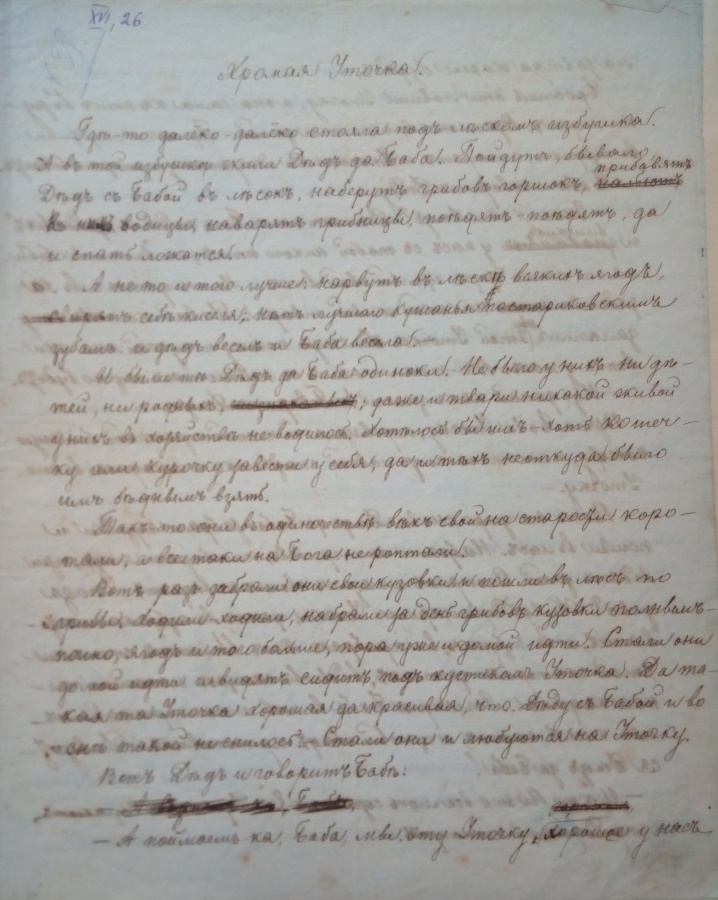 XVI, 26
Хромая Уточка.
Гдѣ-то далёко-далёко стояла подъ лѣскомъ избушка.
А въ той избушкѣ жили Дѣдъ да Баба. Пойдутъ, бывало,
прибавятъ
Дѣдъ съ Бабой въ лѣсокъ, наберутъ грибовъ горшокъ, нальютъ
водицы, наварятъ грибницы, поѣдятъ-поѣдятъ, да
и спать ложатся.
А не то и того лучше: нарвутъ въ лѣску всякихъ ягодъ,
сварятъ себѣ киселя; нѣтъ лучшаго кушанья по стариковскимъ
зубамъ: и дѣдъ веселъ и Баба весела.—
И были тѣ Дѣдъ да Баба одиноки. Не было у нихъ ни дѣ-
тей, ни родныхъ, ; даже и твари никакой живой
у нихъ въ хозяйствѣ не водилось. Хотѣлось бы имъ хоть кошеч-
ку или курочку завести у себя, да и тѣхъ неоткуда было
имъ бѣднымъ взять.
Такъ-то они въ одиночествѣ вѣкъ свой на старости коро-
тали, и все таки на Бога не роптали.
Вотъ разъ забрали они свои кузовки и пошли въ лѣсъ по
грибы. Ходили ходили, набрали за день грибовъ кузовки полнымъ-
полно, ягодъ и того больше, пора уже и домой идти. Стали они
домой идти и видятъ сидитъ подъ кустикомъ Уточка. Да та-
кая та Уточка хорошая да красивая, что Дѣду съ Бабой и во
снѣ такой не снилось.— Стали они и любуются на Уточку.
Вотъ Дѣдъ и говоритъ Бабѣ:
— А поймаемъ ка, Баба, мы эту Уточку, хорошо у насъ